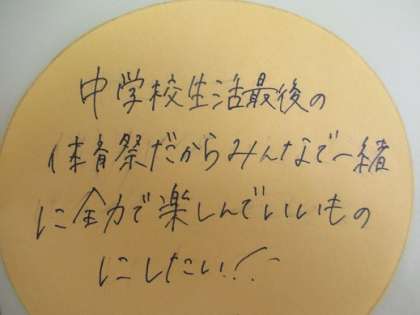 中学校生活最後の
体育祭だからみんなで一緒
に全力で楽しんでいいもの
にしたい!!